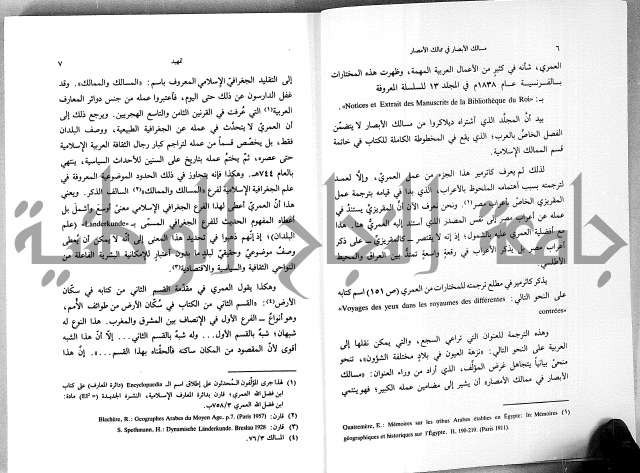 ٦
مسالك الأبصار في ممالك الأمصار
العمري، شأنه في كثيرٍ من الأعمال العربية المهمة، وظهرت هذه المختارات
بـالفـرنسـيـة عـــام ١٨٣٨م في المجلد ١٣ للسلسلة المعروفة
بـ: «Notices et Extrait des Manuscrits de la Bibliothèque du Roi».
بيد أنّ المجلّد الذي اشتراه ديلاكروا من مسالك الأبصار لا يتضمّن
الفصل الخاصّ بالعرب؛ الذي يقع في المخطوطة الكاملة للكتاب في خاتمة
قسم الممالك الإسلامية.
لذلك لم يعرف كاترمير هذا الجزء من عمل العمري، وإلّا لعمد
لترجمته بسبب اهتمامه الملحوظ بالأعراب، الذي بدا في قيامه بترجمة عمل
المقريزي الخاصّ بأعراب مصر(١). ونحن نعرف الآن أنّ المقريزي يستند في
عمله عن أعراب مصر إلى نفس المصدر الذي أستند إليه العمري هنا. هذا
مع أفضلية العمري عليه بالشمول؛ إذ إنه لا يقتصر ـ كالمقريزي ـ على ذكر
أعراب مصر بل يذكر الأعراب في رقعةٍ واسعةٍ تمتدّ بين العراق والمحيط
الأطلسي.
يذكر كاترمير في مطلع ترجمته للمختارات من العمري (ص ١٥١) اسم كتابه
على النحو التالي: «Voyages des yeux dans les royaumes des différentes
contrées»
وهذه الترجمة للعنوان التي تراعي السجع، والتي يمكن نقلها إلى
العربية على النحو التالي: «نزهة العيون في بلادٍ مختلفة الشؤون»، تنحو
منحىً بيانياً يتجاهل غرض المؤلّف، الذي أراد من وراء العنوان: «مسالك
الأبصار في ممالك الأمصار» أن يشير إلى مضامين عمله الكبير؛ فهو ينتمي
(١) Quatremère, E.: Mémoires sur les tribus Arabes établies en Égypte; In: Mémoires
géographiques et historiques sur l'Égypte. II. 190-219. (Paris 1911).
تمهيد
٧
إلى التقليد الجغرافيّ الإسلامي المعروف باسم: «المسالك والممالك». وقد
غفل الدارسون عن ذلك حتى اليوم، فأعتبروا عمله من جنس دوائر المعارف
العربية(١) التي عُرفت في القرنين الثامن والتاسع الهجريين. ويرجع ذلك إلى
أن العمريّ لا يتحدّث في عمله عن الجغرافية الطبيعية، ووصف البلدان
فقط، بل يخصّص قسماً من عمله لتراجم كبار رجال الثقافة العربية الإسلامية
حتى عصره، ثمّ يختم عمله بتاريخ على السنين للأحداث السياسية، ينتهي
بالعام ٧٤٤هـ. وهكذا فإنه يتجاوز في ذلك الحدود الموضوعية المعروفة في
علم الجغرافية الإسلامية لفرع «المسالك والممالك»(٢) السالف الذكر. ويعني
هذا أنّ العمريّ أعطى لهذا الفرع الجغرافي الإسلامي معنىً أوسع وأشمل بل
أعطاه المفهوم الحديث للفرع الجغرافي المسمّى بـ «Länderkunde» (علم
البلدان)؛ إذ إنّهم ذهبوا في تحديد هذا المعنى إلى أنه لا يمكن أن يُعطى
وصف موضوعيّ وحقيقيّ لبلدٍ ما بدون أعتبارٍ للإمكانية البشرية الفاعلة من
النواحي الثقافية والسياسية والاقتصادية(٣).
وهكذا يقول العمري في مقدّمة القسم الثاني من كتابه في سكّان
الأرض(٤): «والقسم الثاني من الكتاب في سُكّان الأرض من طوائف الأمم،
وهو أنواعٌ ـ الفرع الأول في الإنصاف بين المشرق والمغرب. هذا النوع له
شبهان؛ شبهٌ بالقسم الأول... وله شبهٌ بالقسم الثاني... إلّا أنّ هذا الشبه
أقوى لأنّ المقصود من المكان ساكنه فألحقْناه بهذا القسم...». إنّ هذا
(١) لهذا جرى المؤلّفون المُحدثون على إطلاق اسم الـ Encyclopaedia (دائرة المعارف) على كتاب
ابن فضل الله العمري؛ قارن بدائرة المعارف الإسلامية، النشرة الجديدة (EI²) مادة:
ابن فضل الله العمري ٧٥٨/٣ب.
(٢) قارن: Blachère, R.: Geographes Arabes du Moyen Age. p.7. (Paris 1957)
(٣) قارن: S. Spethmann, H.: Dynamische Länderkunde. Breslau 1928
(٤) المسالك ٧٦/٣.
جامعة رياح الوطنية